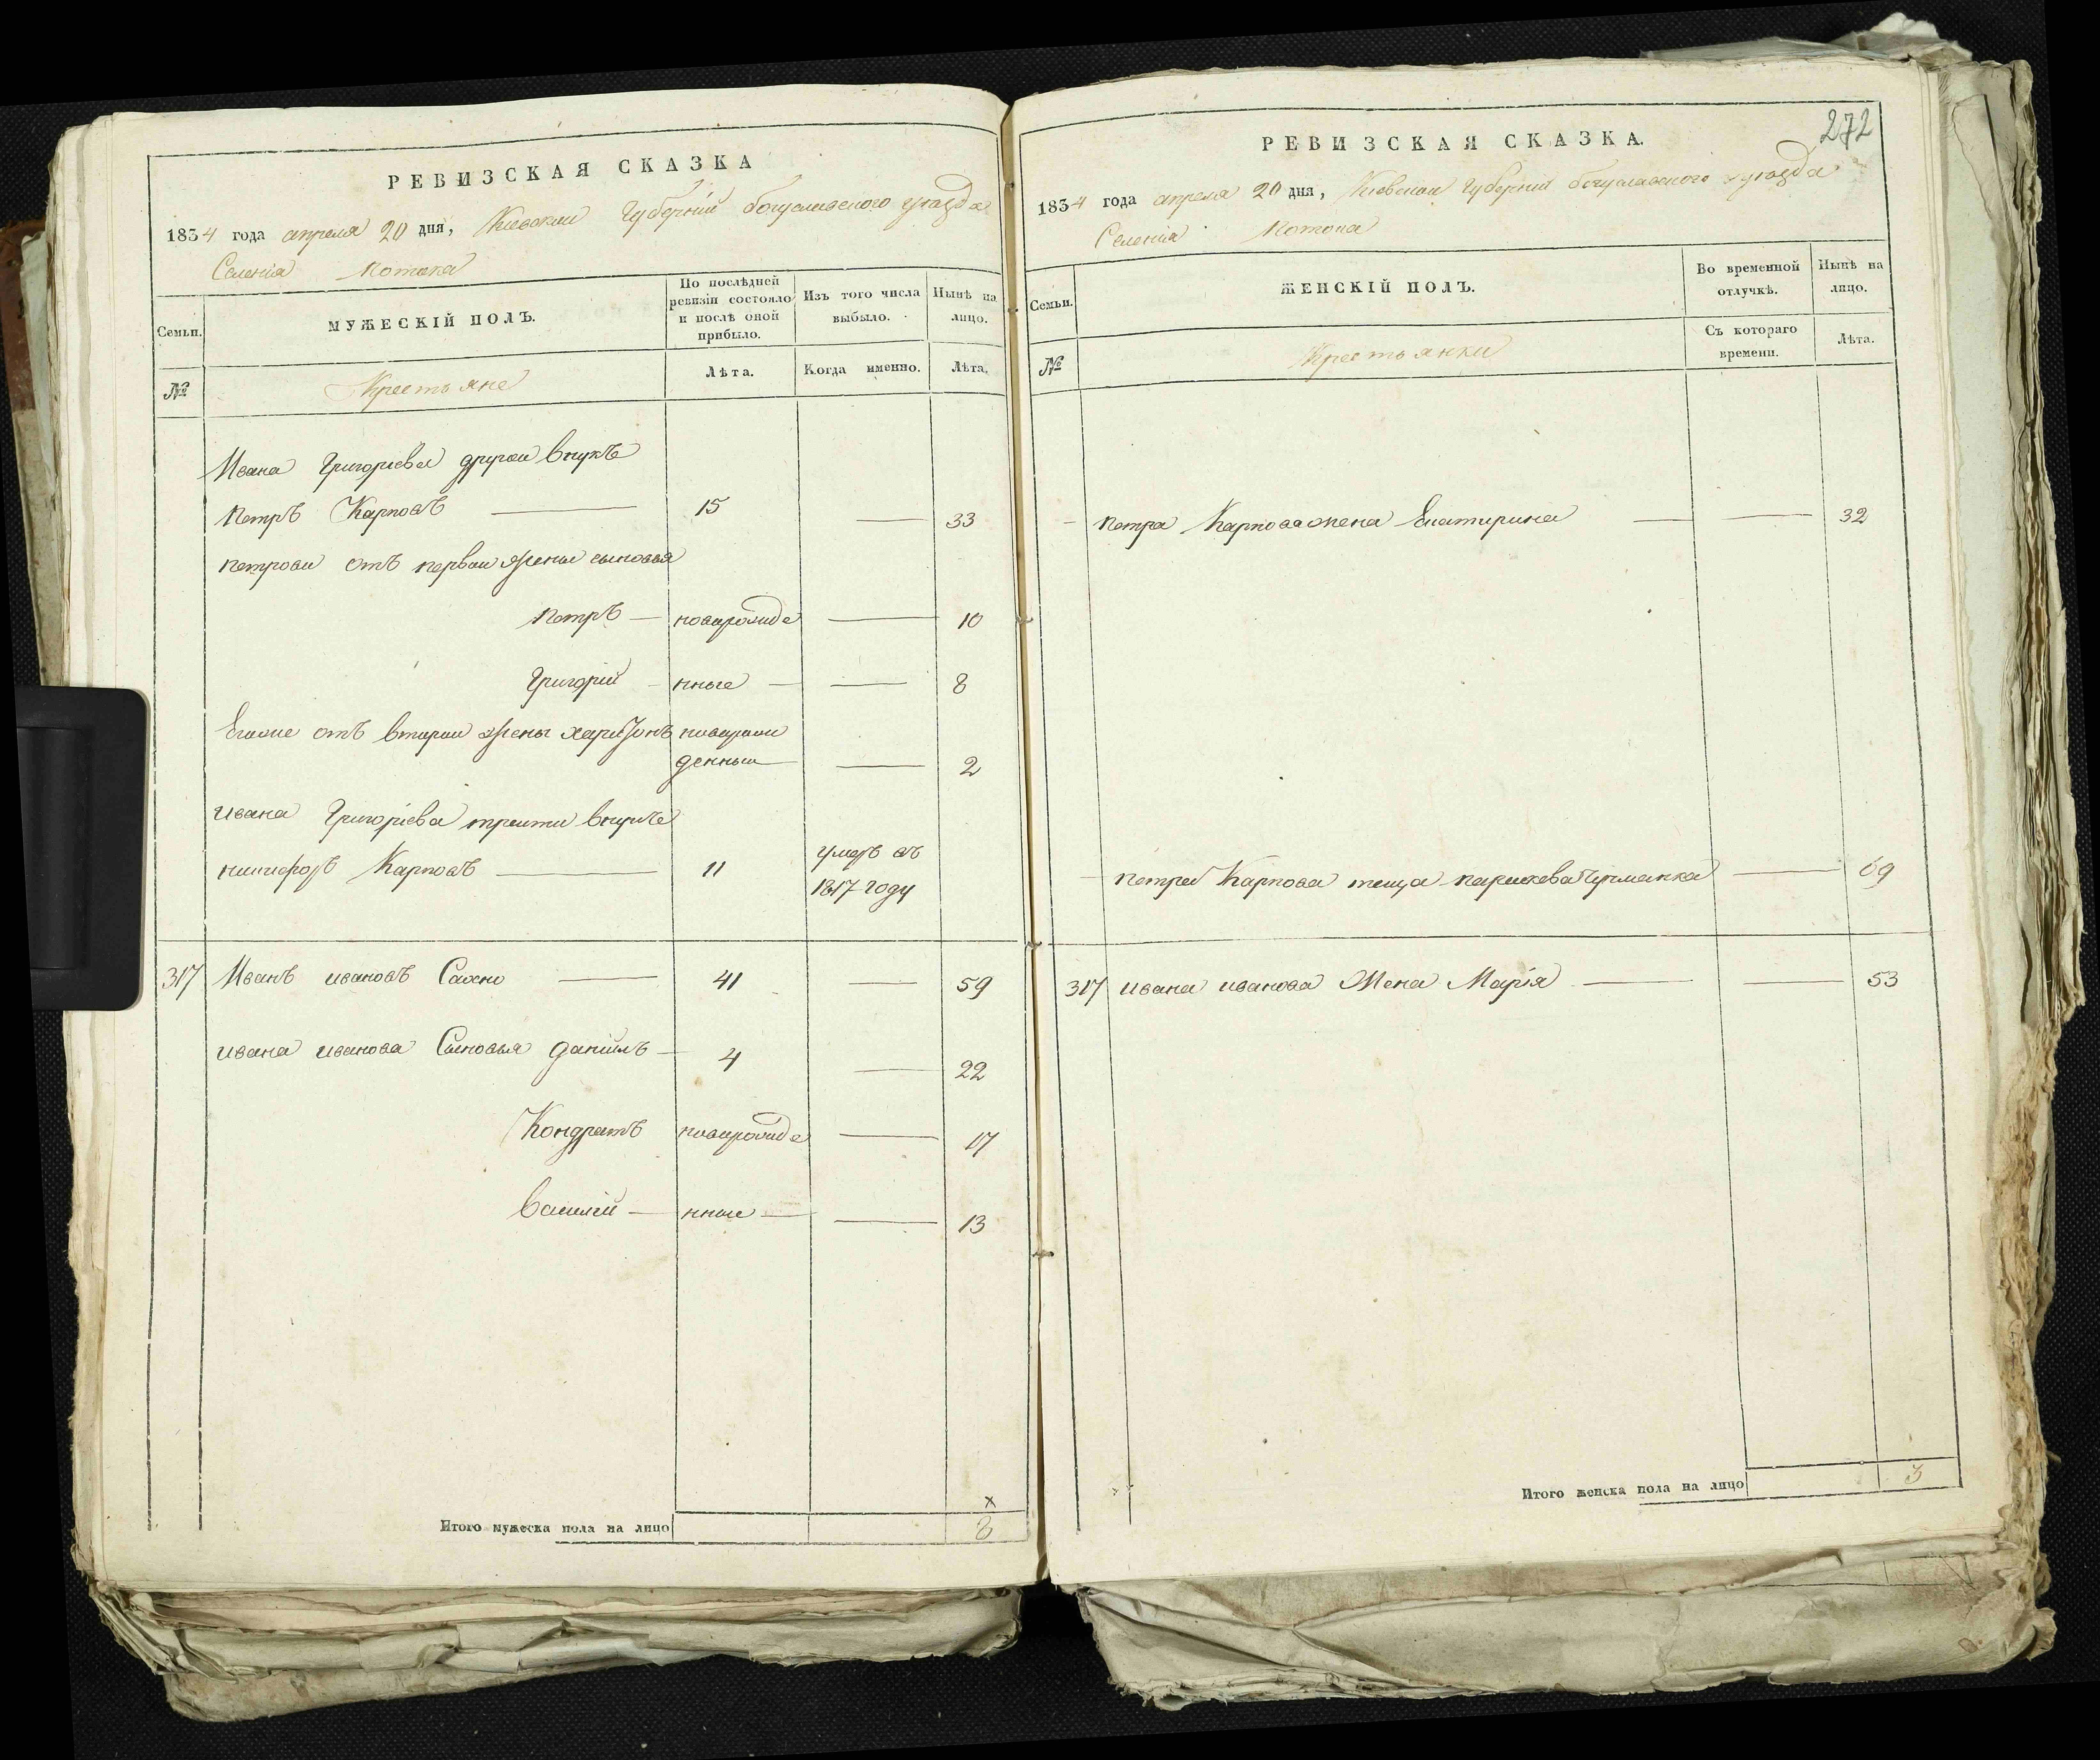 РЕВИЗСКАЯ СКАЗКА
1834 года апреля 20 дня, Киевской Губерніи богуславского уезда
Селенія Потока
Семьи.
МУЖЕСКІЙ ПОЛЪ.
По послѣдней ревизіи состояло и послѣ оной прибыло.
Изъ того числа выбыло.
Нынѣ на лицо.
№
Крестьяне
Лѣта.
Когда именно.
Лѣта.
Ивана Григорьева другой внукъ
Петръ Карповъ 15 33
петрови отъ первои жены сыновья
Петръ новорожде 10
Григорій нные 8
Егоже отъ второи жены харитонъ новорож
денный 2
ивана Григоріева третій внукъ
никифоръ Карповъ 11 умеръ въ 1817 году
317 Иванъ ивановъ Сахно 41 59
ивана иванова Сыновья даніилъ 4 22
Кондратъ новорожде 17
Василій нные 13
Итого мужеска пола на лицо 8
272
РЕВИЗСКАЯ СКАЗКА.
1834 года апреля 20 дня, Киевской Губерніи богуславского уезда
Селенія Потока
Семьи.
ЖЕНСКІЙ ПОЛЪ.
Во временной отлучкѣ.
Нынѣ на лицо.
№
Крестьянки
Съ котораго времени.
Лѣта.
петра Карпова жена Екатерина 32
петра Карпова теща параскева 69
317 ивана иванова Жена Марія 53
Итого женска пола на лицо 3